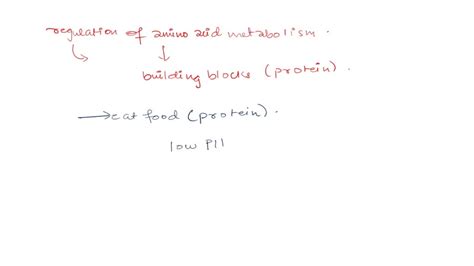 regulation of amino acid metabolism.
building blocks (protein).
→eat food (protein).
low PH